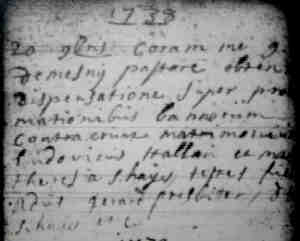 1738
20 9bris Coram me g
demesny pastore obten
dispensatione super pro
mationibus bannorum
contraxerunt matrimonium
Ludovicus Hallain et ma
theresia shays testes
gerard presbiter, D
Schays etc